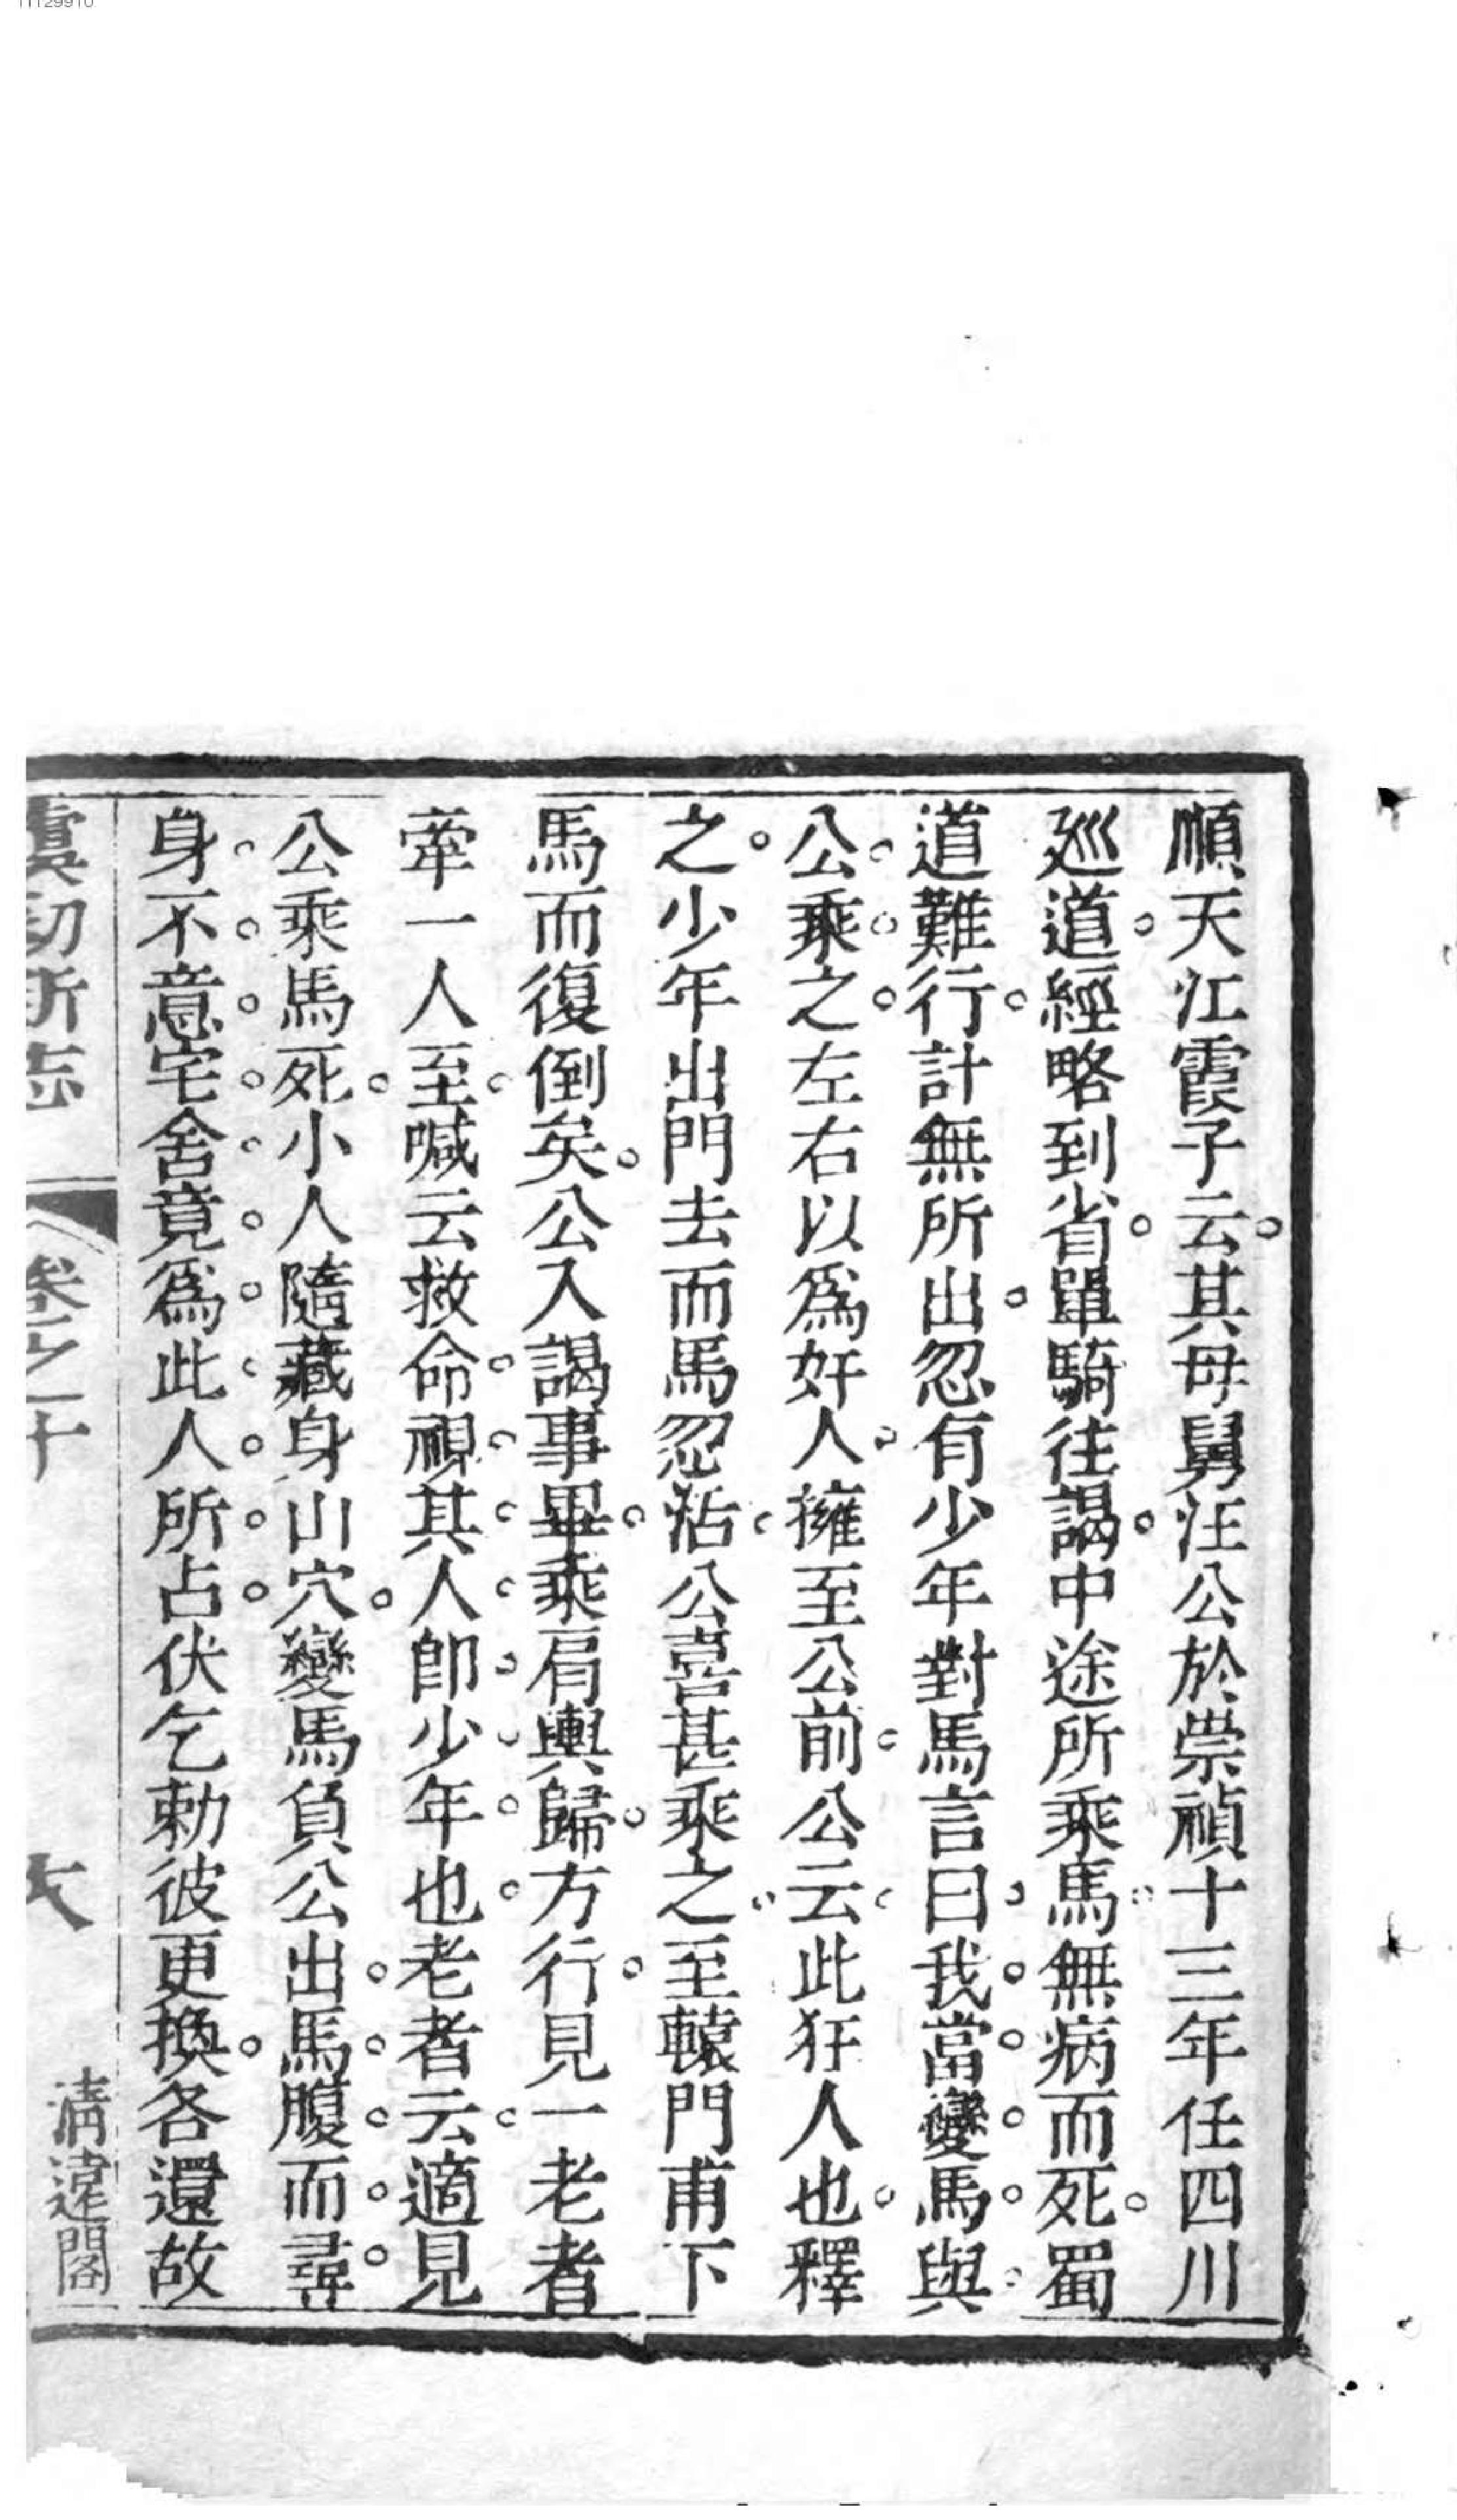 順天江霞子云其母舅汪公於崇禎十三年任四川
巡道經略到省單騎往謁中途所乘馬無病而死蜀
道難行計無所出忽有少年對馬言曰我當變馬與
公乘之左右以爲奸人擁至公前公云此狂人也釋
之少年出門去而馬忽活公喜甚乘之至轅門甫下
馬而復倒矣公入謁事畢乘肩輿歸方行見一老者
牽一人至喊云救命視其人卽少年也老者云適見
公乘馬死小人隨藏身山穴變馬負公出馬腹而尋
身不意宅舍竟爲此人所占伏乞勅彼更換各還故
虞初新志
卷之十
大
清遠閣